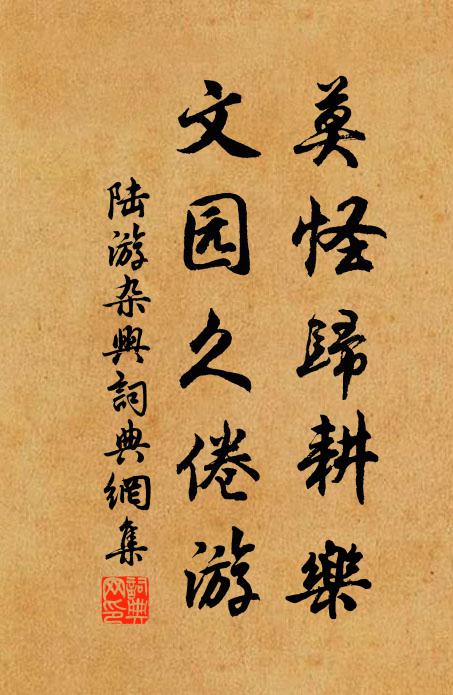 莫怪歸耕樂
文园久倦游
陆游杂興詞典網集
詞典网印